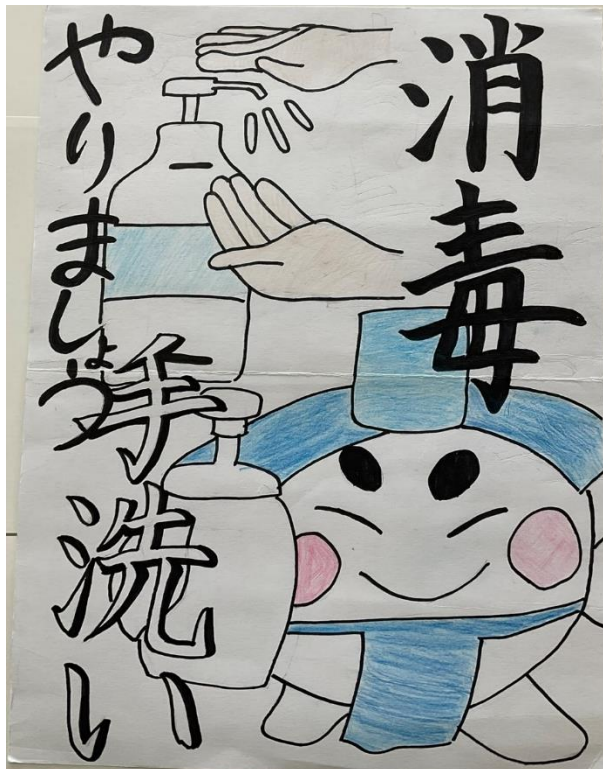 消毒
手洗い
やりましょう